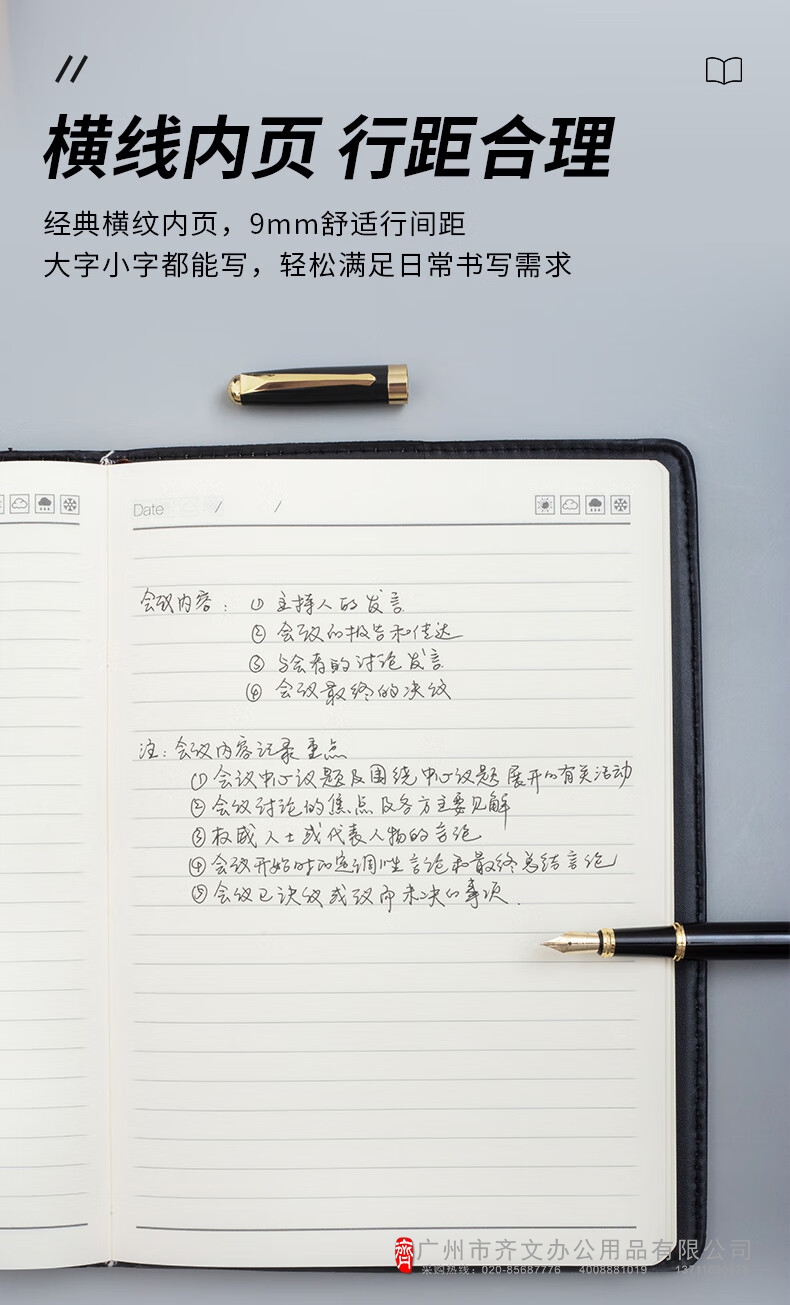 横线内页 行距合理
经典横纹内页，9mm舒适行间距
大字小字都能写，轻松满足日常书写需求
Date / /
会议内容：① 主持人的发言
② 会议的报告和传达
③ 与会者的讨论发言
④ 会议最终的决议
注：会议内容记录重点
① 会议中心议题及围绕中心议题展开的有关活动
② 会议讨论的焦点及各方主要见解
③ 权威人士或代表人物的言论
④ 会议开始时的定调性言论和最终总结言论
⑤ 会议已决议或议而未决的事项.
齊 广州市齐文办公用品有限公司
采购热线：020-85687776 4008881019